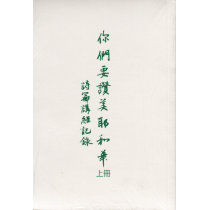 你們要讚美耶和華
上冊
詩篇講經記錄